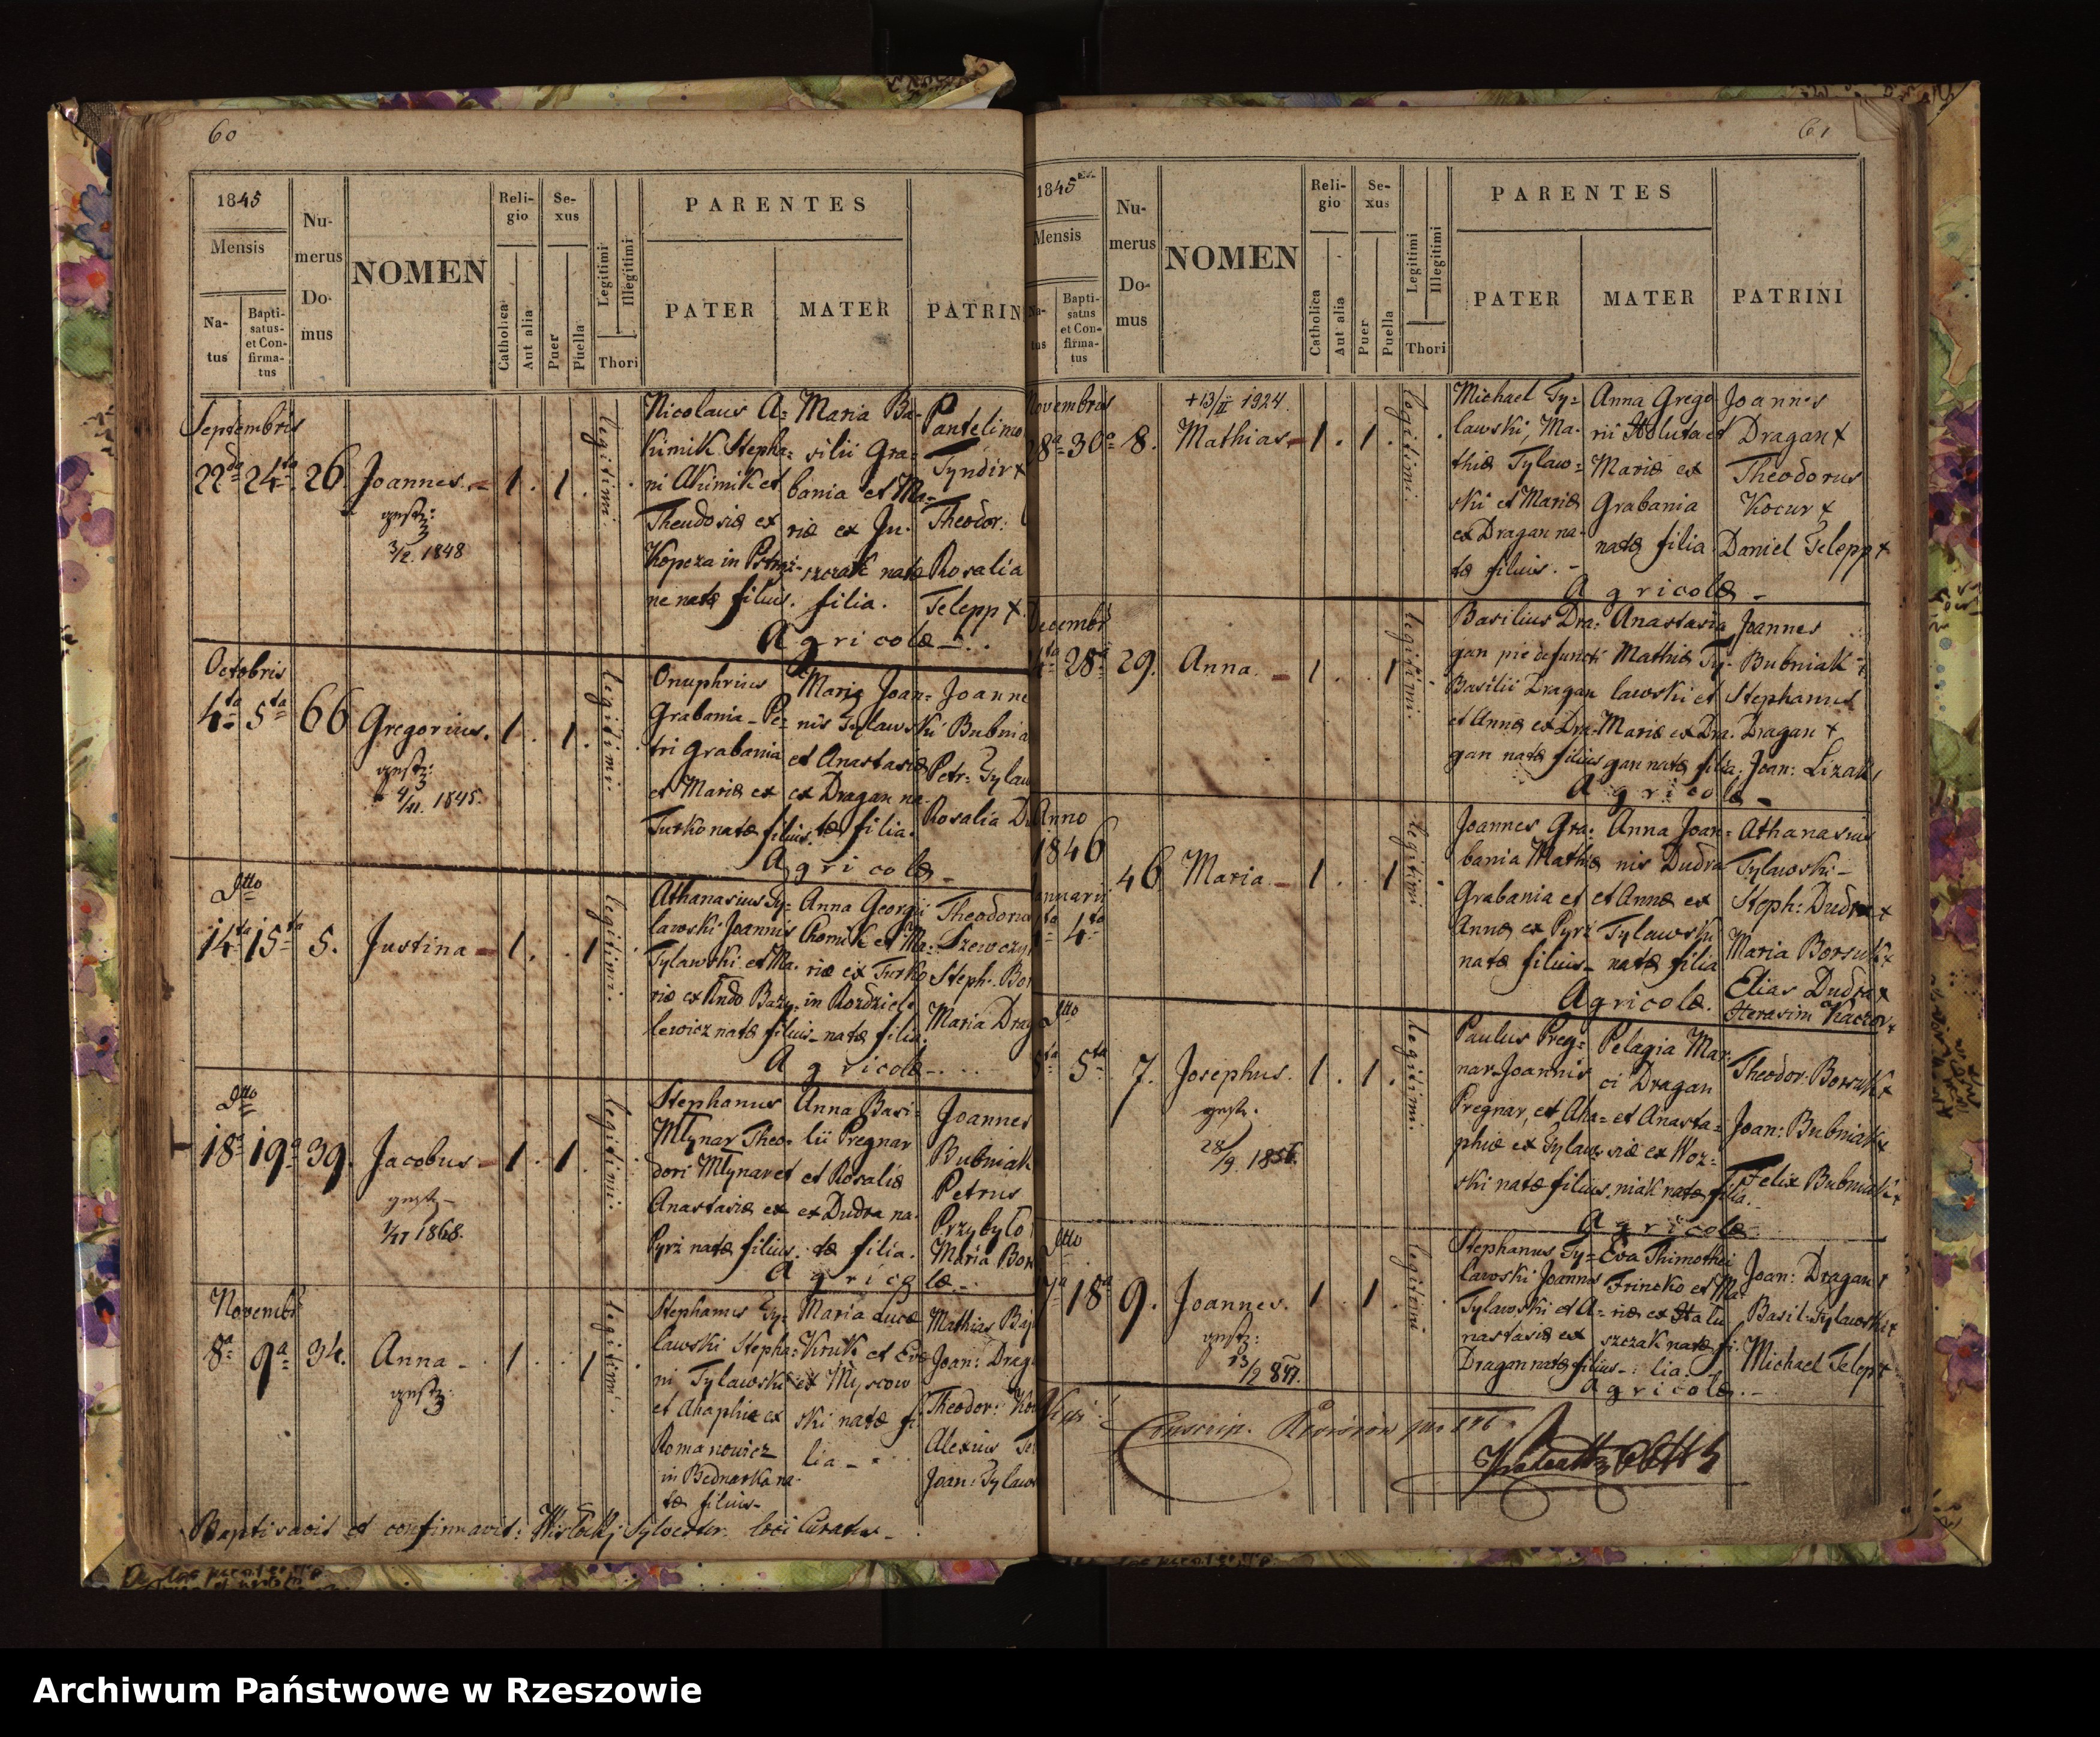 60
1845
Mensis
Na-
tus
Bapti-
satus-
et Con-
firma-
tus
Nu-
merus
Do-
mus
NOMEN
Reli-
gio
Catholica
Aut alia
Se-
xus
Puer
Puella
Legitimi
Illegitimi
Thori
PARENTES
PATER
MATER
PATRIN
Septembris
22da 24ta 26 Joannes 1. 1. legitimi
3/2. 1848
Nicolaus A=
kimik Stepha=
ni Akimik et
Theudosiæ ex
Kopcza in
ne natæ filius.
Maria Ba-
silii Gra=
bania et Ma-
riæ ex Ju-
szczak natæ
filia.
Pantelimo
Tyndir x
Theodor:
Rosalia
Telepp x
Agricolæ
Octobris
4ta 5ta 66 Gregorius. 1. 1. legitimi
4/11. 1845.
Onuphrius
Grabania - Pe=
tri Grabania
et Mariæ ex
Turko natæ filius.
Maria Joan=
nis Tylawski
et Anastasiæ
ex Dragan na-
tæ filia.
Joanne
Bubnia
Petr: Tylaw
Rosalia D
Agricolæ
Dtto
14ta 15ta 5. Justina 1. 1 legitimi
Athanasius Ty=
lawski Joannis
Tylawski et Ma-
riæ ex Ando Bazy-
lewicz natæ filius
Anna Georgii
Chomik et Ma=
riæ ex Turko
in Rozdziele
natæ filia.
Theodorus
Szewczy
Steph: Bor
Maria Drag
Agricolæ
Dtto
18a 19a 39. Jacobus 1. 1. legitimi
1868.
Stephanus
Młynar Theo-
dori Młynar et
Anastasiæ ex
Pyrz natæ filius.
Anna Basi-
lii Pregnar
et Rosaliæ
ex Dudra na-
tæ filia.
Joannes
Bubniak
Petrus
Przybyło
Maria Bor
Agricolæ
Novembr
8a 9a 34. Anna 1. 1 legitimi
Stephanus Ty=
lawski Stepha=
ni Tylawski
et Ahaphiæ ex
Romanowicz
in Bednarka na-
tæ filius
Maria Lucæ
Kruk et Evæ
ex Myscow
ski natæ fi
lia
Mathias Baj
Joan: Drag
Theodor: Ko
Alexius Te
Joan: Tylaw
Baptisavit et confirmavit: Wisłocky Sylvester. loci Curatus
61
1845
Mensis
Na-
tus
Bapti-
satus
et Con-
firma-
tus
Nu-
merus
Do-
mus
NOMEN
Reli-
gio
Catholica
Aut alia
Se-
xus
Puer
Puella
Legitimi
Illegitimi
Thori
PARENTES
PATER
MATER
PATRINI
Novembris
+13/II 1924.
28a 30a 8. Mathias 1. 1. legitimi
Michael Ty=
lawski, Ma-
thiæ Tylaw=
ski et Mariæ
ex Dragan na-
tæ filius.
Anna Grego
rii Holuta et
Mariæ ex
Grabania
natæ filia
Joannes
Dragan x
Theodorus
Kocur x
Daniel Telepp x
Agricolæ
Decembr
28a 29. Anna. 1. 1 legitimi
Basilius Dra=
gan pie defuncti
Basilii Dragan
et Annæ ex Dra-
gan natæ filius
Anastasia
Mathiæ Ty-
lawski et
Mariæ ex Dra-
gan natæ filia.
Joannes
Bubniak
Stephanus
Dragan x
Joan: Lizak
Agricolæ
Anno
1846
Januarii
4ta 46 Maria 1. 1. legitimi
Joannes Gra=
bania Mathiæ
Grabania et
Annæ ex Pyrz
natæ filius
Anna Joan=
nis Dudra
et Annæ ex
Tylawski
natæ filia
Athanasius
Tylawski
Steph: Dudra x
Maria Borsuk x
Elias Dudra x
Herasim Kaczor x
Agricolæ.
Dtto
5ta 5ta 7. Josephus. 1. 1. legitimi
28/9. 1856.
Paulus Preg=
nar Joannis
Pregnar, et Aha=
phiæ ex Tylaw
ski natæ filius.
Pelagia Mar
ci Dragan
et Anasta=
siæ ex Woz=
niak natæ filia.
Theodor: Borsuk x
Joan: Bubniak x
Felix Bubniak x
Agricolæ
Dtto
17a 18a 9. Joannes. 1. 1. legitimi
13/2 847.
Stephanus Ty=
lawski Joannes
Tylawski et A=
nastasiæ ex
Dragan natæ filius
Eva Thimothei
Fricko et Ma
riæ ex Hału
szczak natæ fi-
lia.
Joan: Dragan
Basil: Tylawski x
Michael Telep x
Agricolæ.
Archiwum Państwowe w Rzeszowie